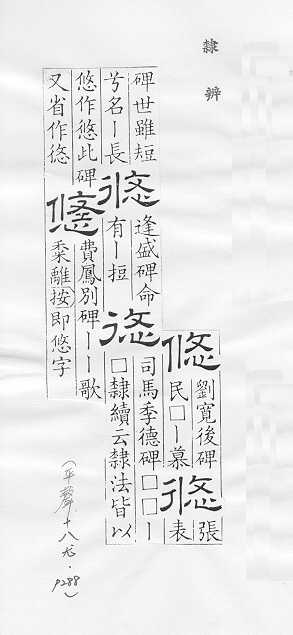 隸辨
悠
劉寬後碑
民□ー慕
悠
張
表
碑世雖短
兮名ー長
悠
逢盛碑命
有ー
悠
司馬季德碑□□ー
□隸續云隸法皆以
悠作悠此碑
又省作悠
悠
費鳳別碑ーー歌
黍離按即悠字
(平聲十八尤.p288)